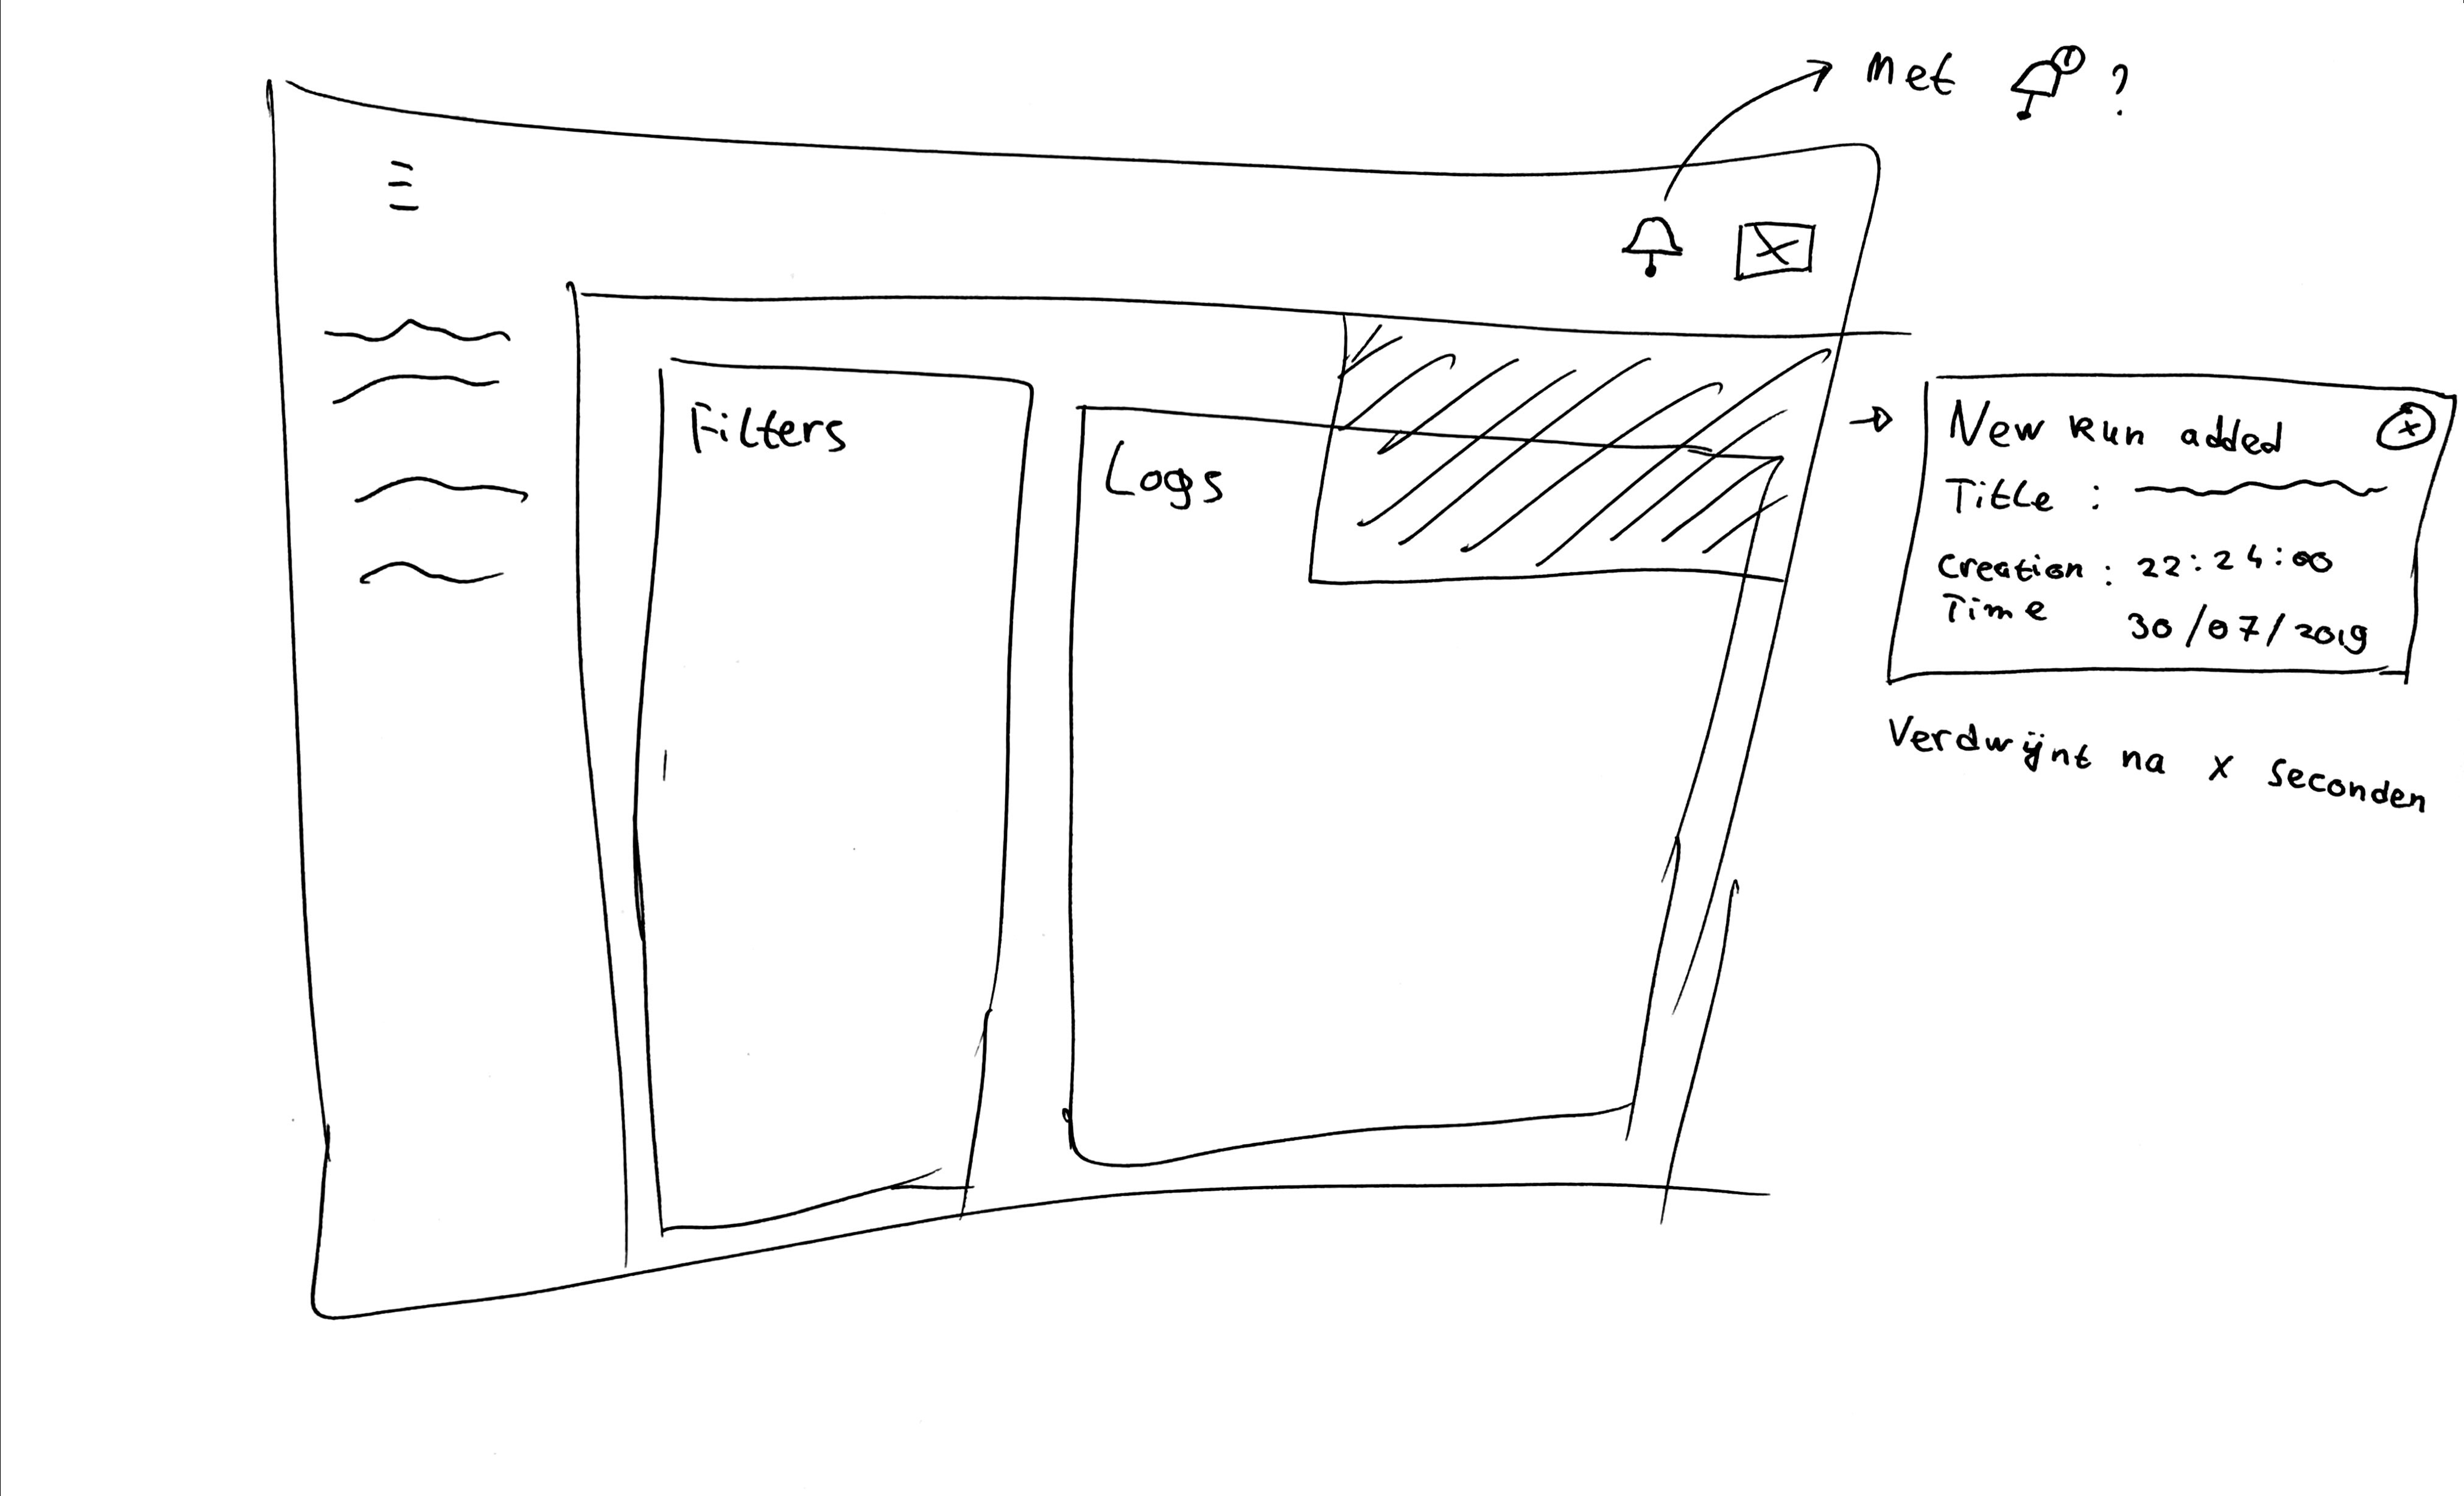 Met ?
Filters
Logs
New Run added
Title :
Creation : 22:24:00
Time
30/07/2019
Verdwijnt na x seconden